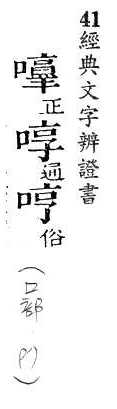 41 經典文字辨證書
正啍通哼俗
(口部